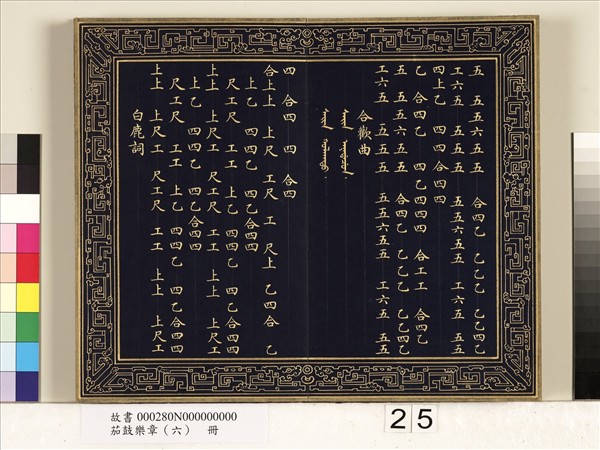 五 五五六五五 合四乙 乙乙乙 乙乙四乙
工六五 五五五 五五六五五 工六五 五五
四上乙 四 四 合四四
乙 合四乙 四 乙四四四 合工工 合四乙
五 五五六五五 合四乙 乙乙乙 乙乙四乙
工六五 五五五 五五六五五 工六五 五五
合歡曲
四 合四 四 合四
合上上 上尺 工尺 工 尺上 乙四合 乙
上乙 四四乙 四乙合四四
尺工尺 工工 上乙 四四乙 四乙合四四
上上 上尺工 尺工尺 工工 上上 上尺工
上乙 四四乙 四乙合四四
尺工尺 工工 上乙 四四乙 四乙合四四
上上 上尺工 尺工尺 工工 上上 上尺工
白鹿詞
故書 000280N000000000
笳鼓樂章（六） 冊
25